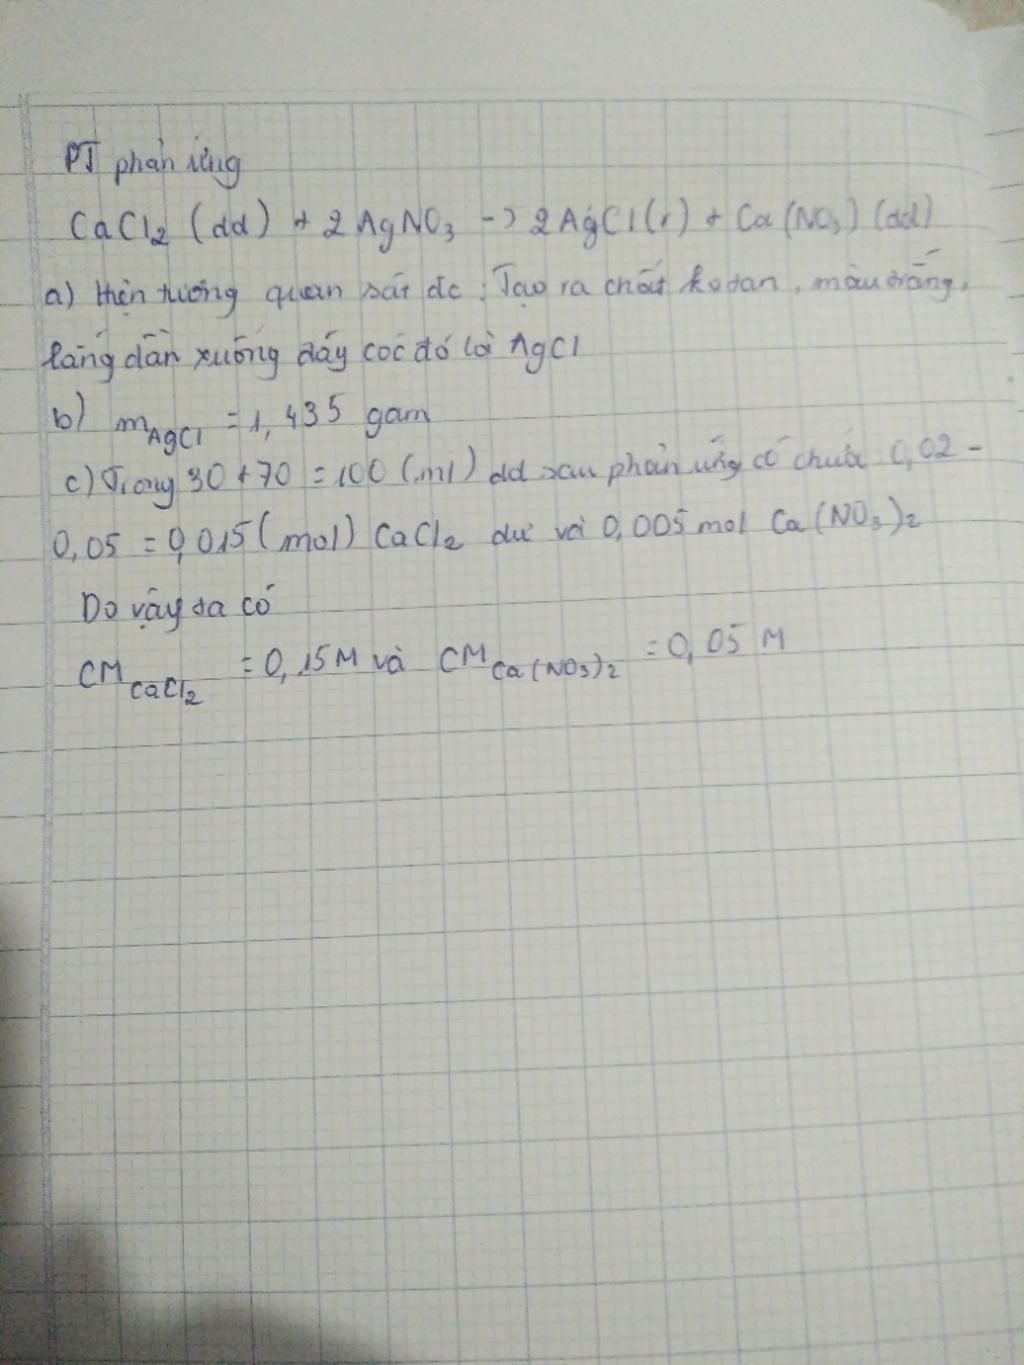 PT phản ứng
CaCl₂ (dd) + 2 AgNO₃ -> 2AgCl(r) + Ca(NO₃) (dd)
a) Hiện tượng quan sát đc : Tạo ra chất ko tan, màu trắng,
lắng dần xuống đáy cốc đó là AgCl
b) mAgCl = 1,435 gam
c) Trong 30 + 70 = 100 (ml) dd sau phản ứng có chứa 0,02 -
0,05 = 0,015 (mol) CaCl₂ dư và 0,005 mol Ca(NO₃)₂
Do vậy ta có
CM CaCl₂ = 0,15M và CM Ca(NO₃)₂ = 0,05 M